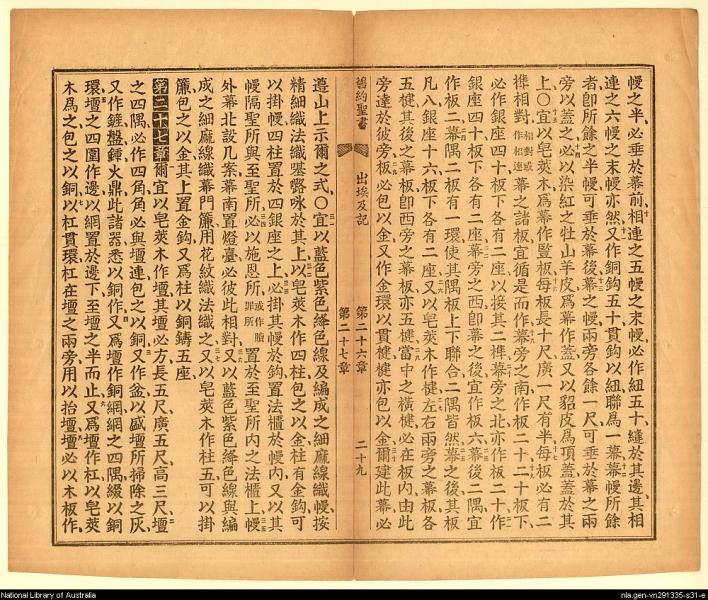 幔之半必垂於幕前相連之五幔之末幔必作紐五十縫於其邊其相
連之六幔之末幔亦然又作銅鈎五十貫鈎以紐聯爲一幕幕幔所餘
者卽所餘之半幔可垂於幕後幕之幔兩旁各餘一尺可垂於幕之兩
旁以蓋之必以染紅之牡山羊皮爲幕作蓋又以貂皮爲頂蓋蓋於其
上〇宜以皂莢木爲幕作豎板每板長十尺廣一尺有半每板必有二
榫相對相對或作相連幕之諸板宜循是而作幕旁之南作板二十二十板下
必作銀座四十板下各有二座以接其二榫幕旁之北亦作板二十作
銀座四十板下各有二座幕旁之西卽幕之後宜作板六幕後二隅宜
作板二幕隅二板有一環使其隅板上下聯合二隅皆然幕之後其板
凡八銀座十六板下各有二座又以皂莢木作楗左右兩旁之幕板各
五楗其後之幕板卽西旁之幕板亦五楗當中之橫楗必在板內由此
旁達於彼旁板必包以金又作金環以貫楗楗亦包以金爾建此幕必
舊約聖書 出埃及記 第二十六章 第二十七章 二十九
遵山上示爾之式〇宜以藍色紫色絳色線及編成之細麻線織幔按
精細織法織𠼻𡀔咏於其上以皂莢木作四柱包之以金柱有金鈎可
以掛幔四柱置於四銀座之上必掛其幔於鈎置法櫃於幔內又以其
幔隔聖所與至聖所必以施恩所或作贖罪所置於至聖所內之法櫃上幔
外幕北設几案幕南置燈臺必彼此相對又以藍色紫色絳色線與編
成之細麻線織幕門簾用花紋織法織之又以皂莢木作柱五可以掛
簾包之以金其上置金鈎又爲柱以銅鑄五座
第二十七章爾宜以皂莢木作壇其壇必方長五尺廣五尺高三尺壇
之四隅必作四角角必與壇連包之以銅又作盆以盛壇所掃除之灰
又作鏟盤鍤火鼎此諸器悉以銅作又爲壇作銅網網之四隅綴以銅
環壇之四圍作邊以網置於邊下至壇之半而止又爲壇作杠以皂莢
木爲之包之以銅以杠貫環杠在壇之兩旁用以抬壇壇必以木板作
National Library of Australia
nla.gen-vn291335-s31-e